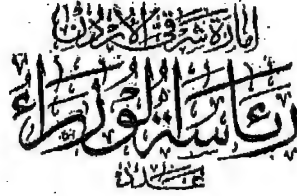 إمارة شرق الأردن
رئاسة الوزراء
عدد